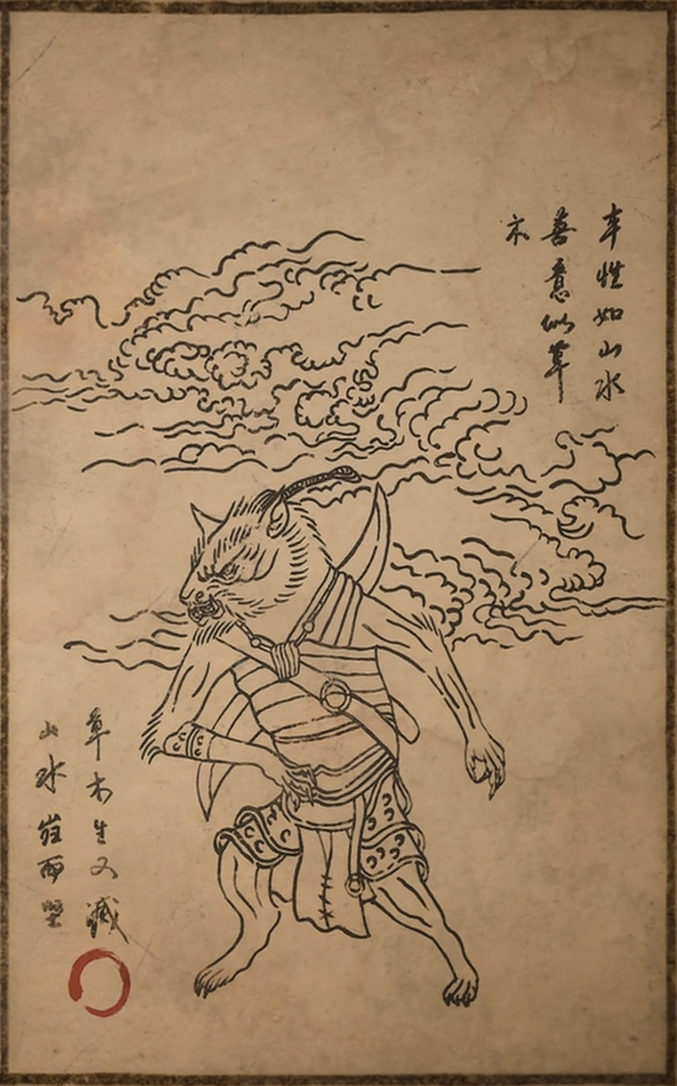 本性如山水
善意似草
木
草木生又滅
山水而堅